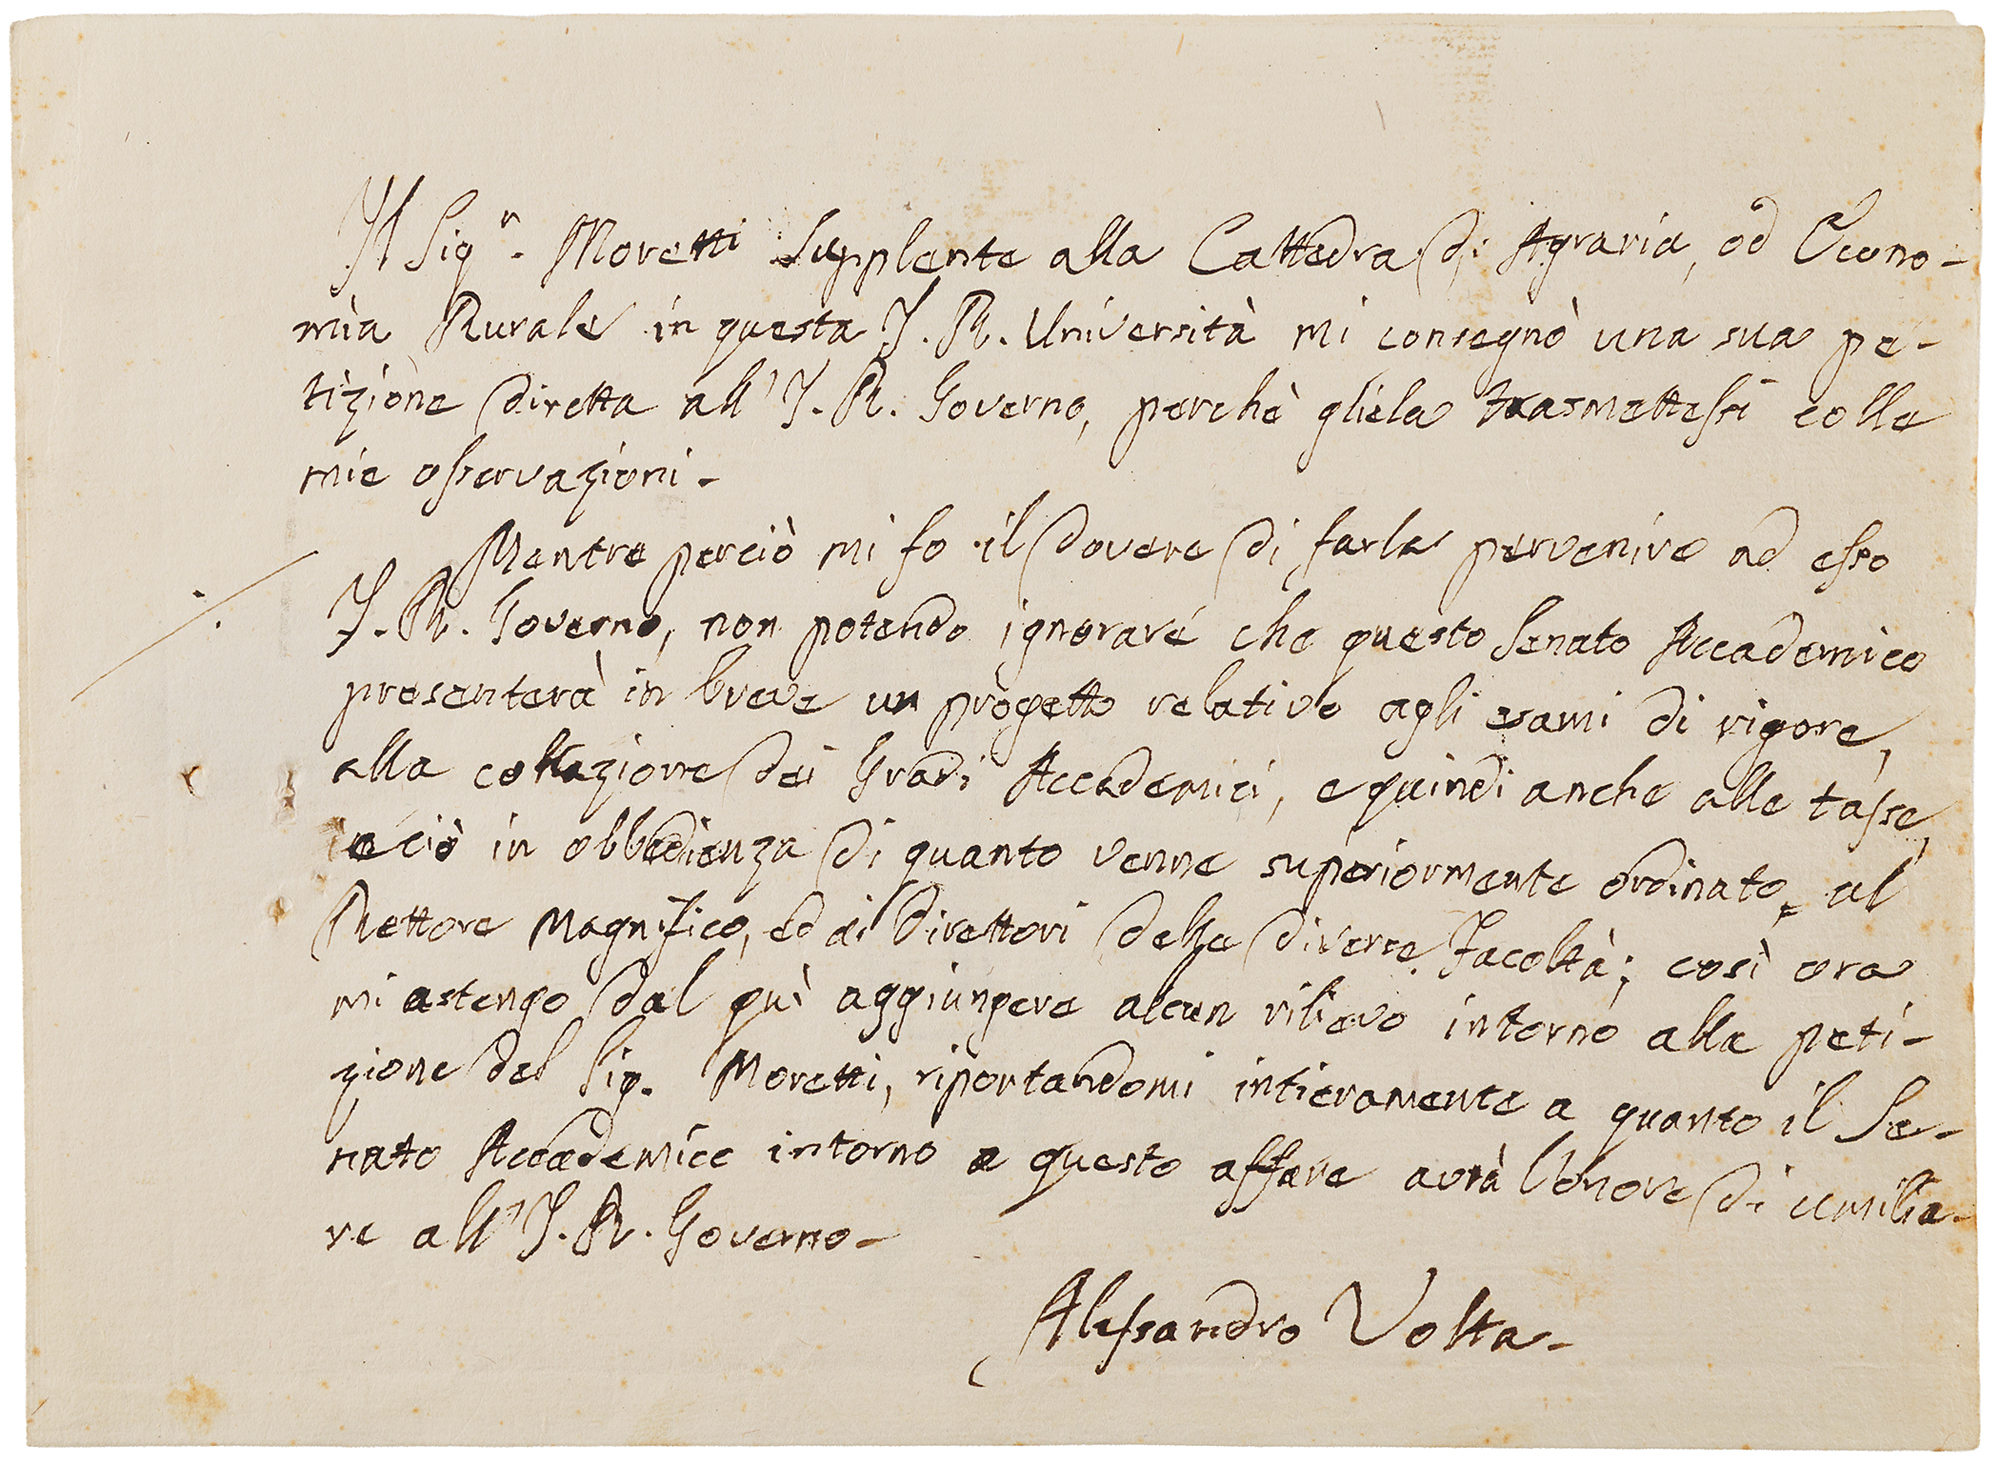 Il Sig.r Moretti Supplente alla Cattedra di Agraria, od Econo-
mia Rurale in questa I. R. Università mi consegnò una sua pe-
tizione diretta all' I. R. Governo, perchè gliela trasmettessi colle
mie osservazioni -
Mentre perciò mi fo il dovere di farla pervenire ad esso
I. R. Governo, non potendo ignorare che questo Senato Accademico
presenterà in breve un progetto relativo agli esami di rigore,
alla collazione dei Gradi Accademici, e quindi anche alle tasse,
e ciò in obbedienza di quanto venne superiormente ordinato, al
Rettore Magnifico, ed ai Direttori delle diverse Facoltà; così ora
mi astengo dal quì aggiungere alcun rilievo intorno alla peti-
zione del Sig. Moretti, riportandomi intieramente a quanto il Se-
nato Accademico intorno a questo affare avrà l'onore di umilia-
re all' I. R. Governo -
Alessandro Volta -